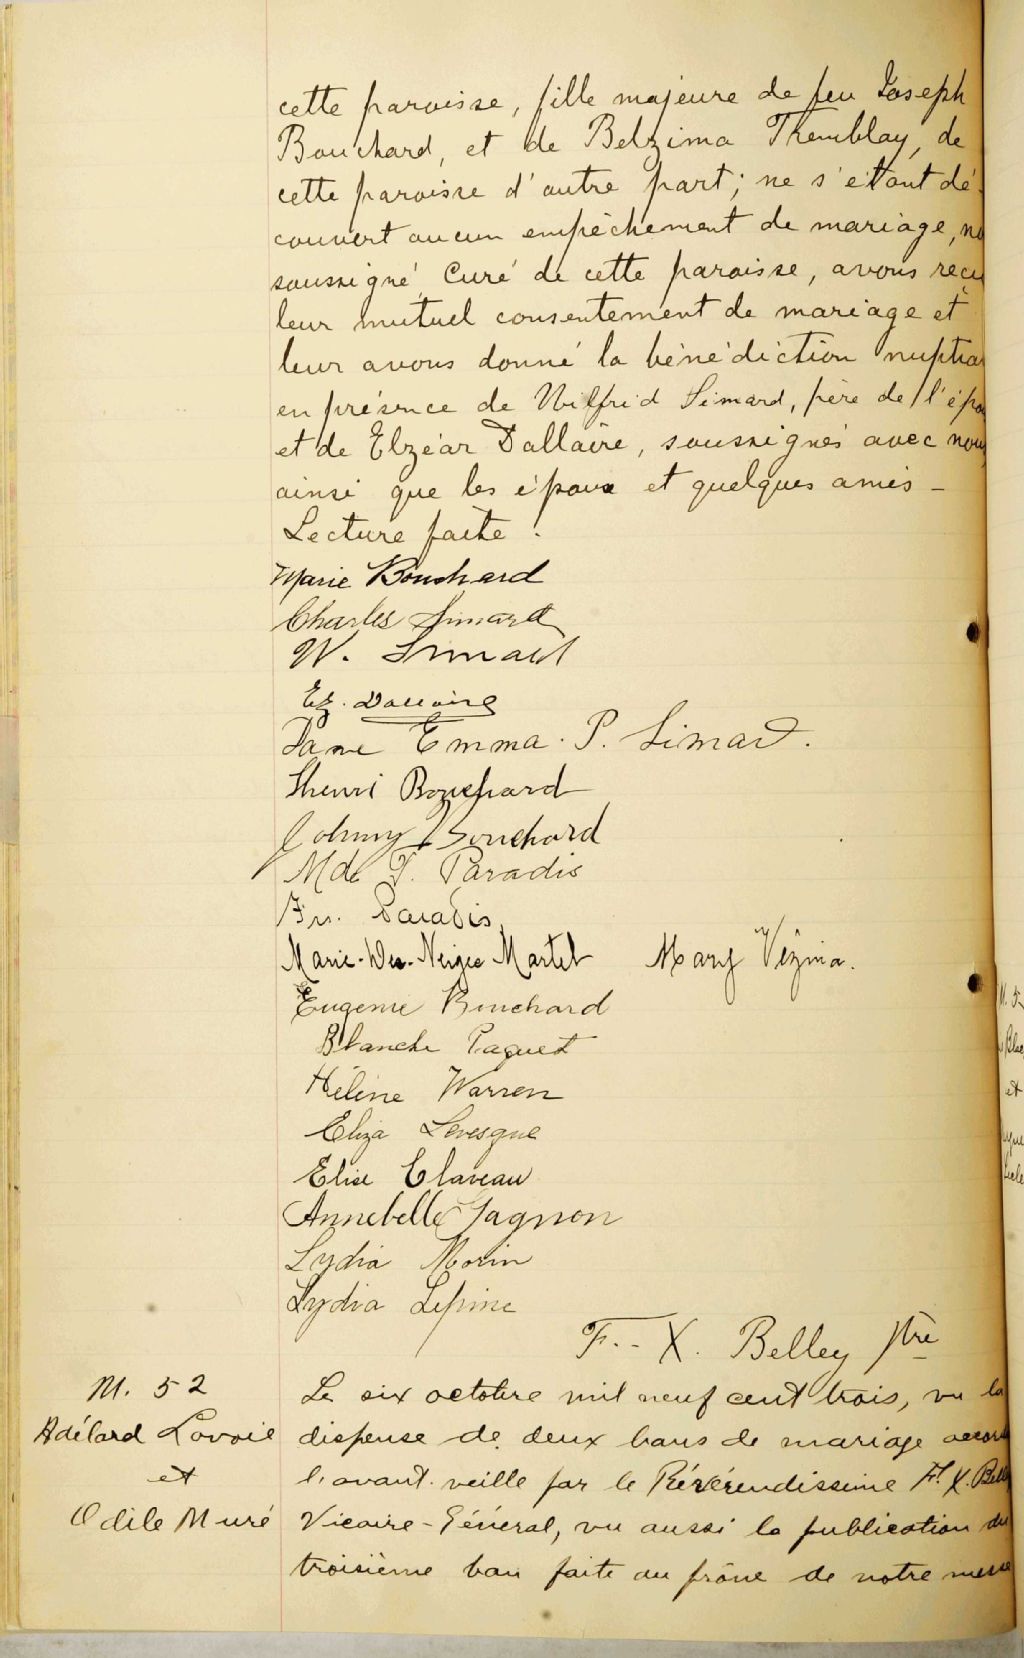 cette paroisse, fille majeure de feu Joseph
Bouchard, et de Belzima Tremblay, de
cette paroisse d'autre part; ne s'étant dé-
couvert aucun empêchement de mariage,
soussigné, Curé de cette paroisse, avons reçu
leur mutuel consentement de mariage et
leur avons donné la bénédiction
en présence de Wilfrid Simard, père de
et de Elzéar Dallaire, soussignés avec nous,
ainsi que les époux et quelques amis -
Lecture faite.
Marie Bouchard
Charles Simard
W. Simard
Ez. Dallaire
Dame Emma. P. Simard.
Henri Bouchard
Johnny Bouchard
Mde F. Paradis
Paradis
Marie-Des-Neiges Martel Mary Vézina.
Eugenie Bouchard
Blanche Paquet
Hélène Warren
Eliza Levesque
Elise Claveau
Annebelle Gagnon
Lydia Morin
Lydia Lepine
F.-X. Belley Ptre
M. 52
Adélard Lavoie
et
Odile Muré
Le six octobre mil neuf cent trois, vu la
dispense de deux bans de mariage
l'avant-veille par le Révérendissime F. X.
Vicaire-Général, vu aussi la publication du
troisième ban faite au prône de notre messe